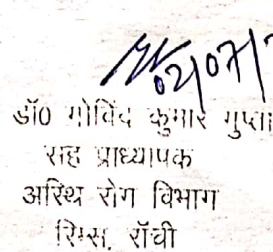 02/07/
डॉ० गोविंद कुमार गुप्ता
सह प्राध्यापक
अस्थि रोग विभाग
रिम्स, राँची